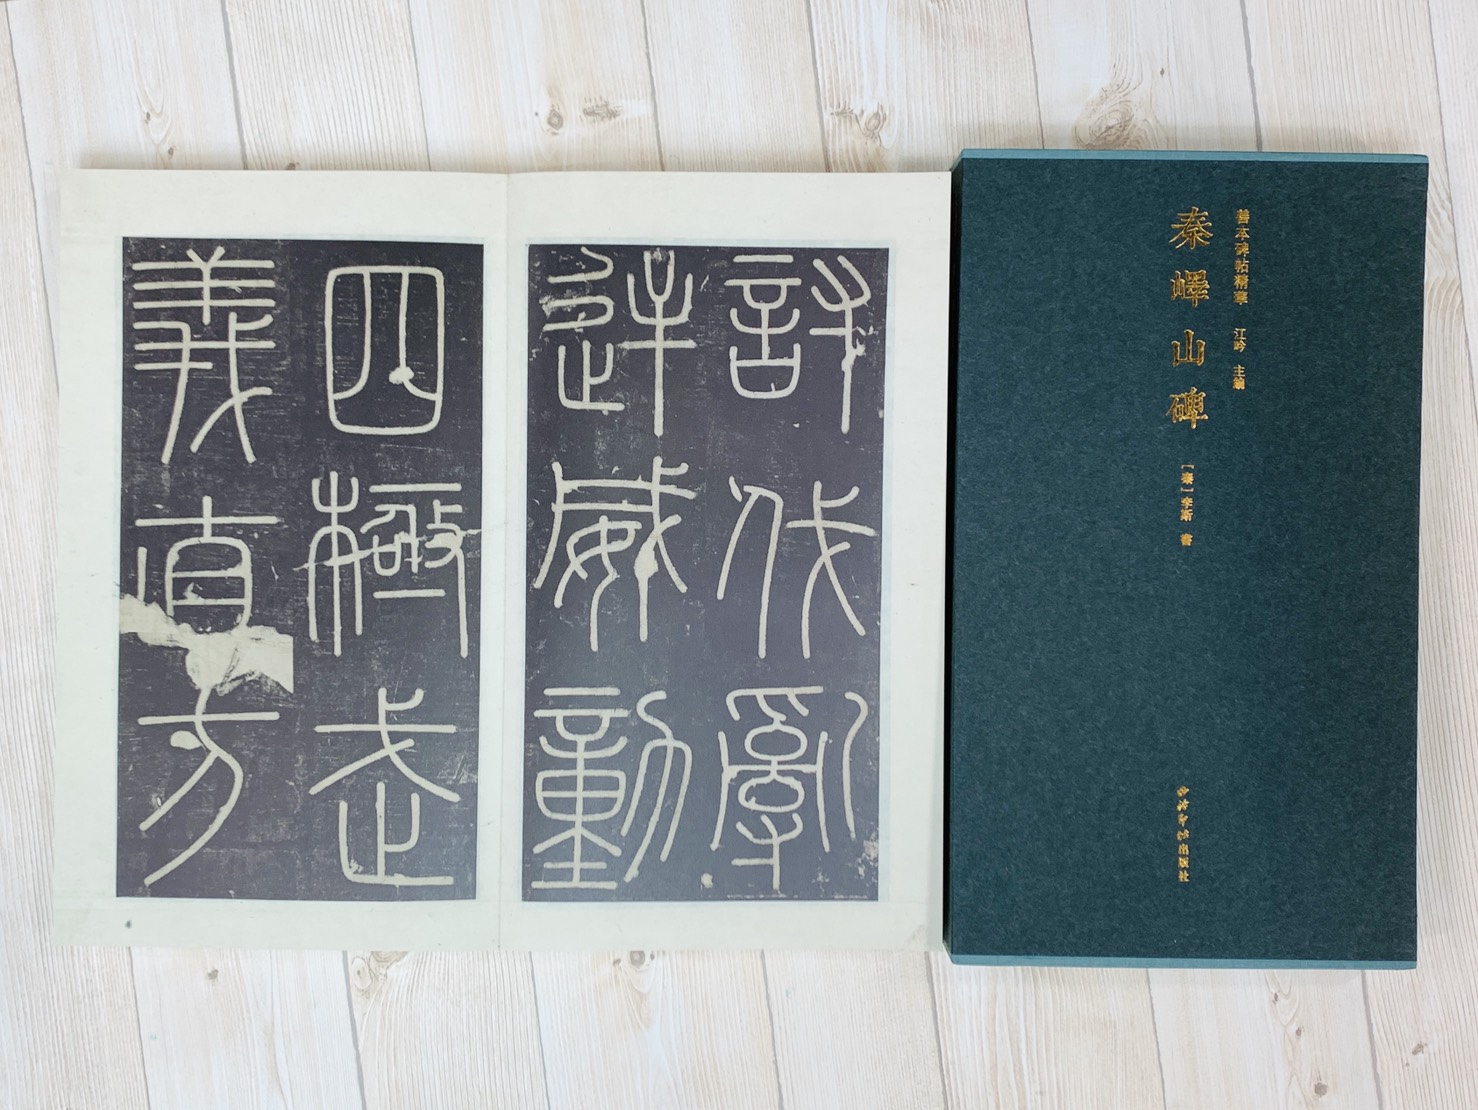 善本碑帖精華 江吟 主編
秦嶧山碑
［秦］李斯 書
西泠印社出版社
討伐亂
逆威動
四極武
義直方